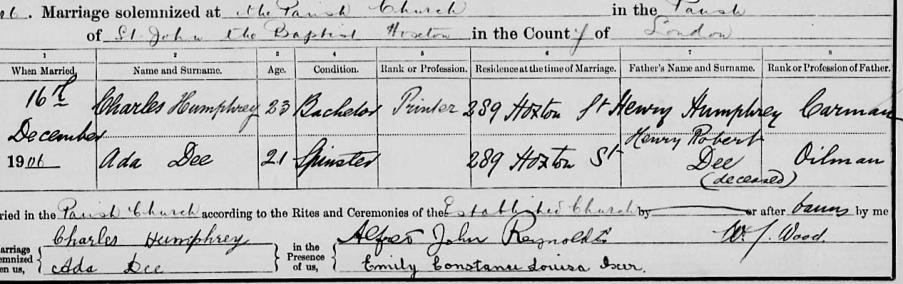 06. Marriage solemnized at the Parish Church in the Parish
of St. John the Baptist Hoxton in the County of London
1 2 3 4 5 6 7 8
When Married. Name and Surname. Age. Condition. Rank or Profession. Residence at the time of Marriage. Father's Name and Surname. Rank or Profession of Father.
16th December 1906
Charles Humphrey 23 Bachelor Printer 289 Hoxton St Henry Humphrey Carman
Ada Dee 21 Spinster 289 Hoxton St Henry Robert Dee (deceased) Oilman
ried in the Parish Church according to the Rites and Ceremonies of the Established Church by or after banns by me
arriage emnized en us, Charles Humphrey in the Presence of us, Alfred John Reynolds W. J. Wood.
Ada Dee Emily Constance Louisa